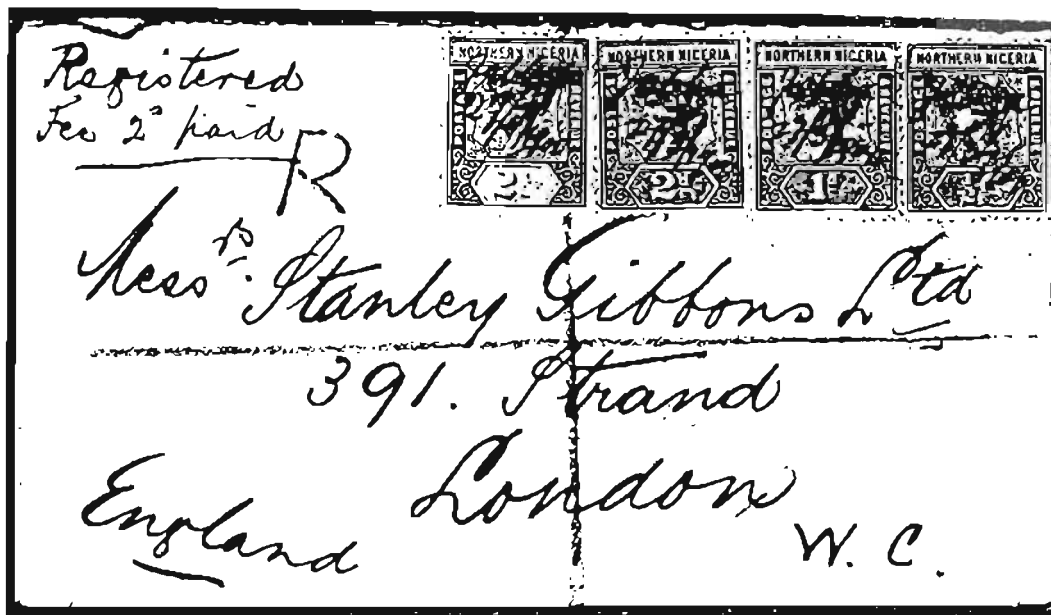 Registered
Fee 2d paid
R
NORTHERN NIGERIA NORTHERN NIGERIA NORTHERN NIGERIA NORTHERN NIGERIA
2½ 2½ 1½
Messrs. Stanley Gibbons Ltd
391. Strand
London
W. C.
England